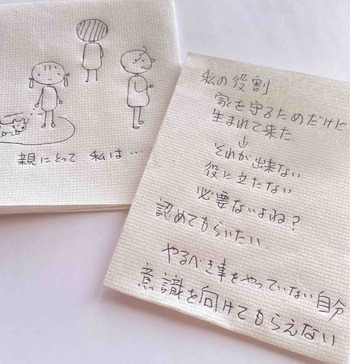 親にとって 私は…
私の役割
家を守るためだけど
生まれて来た
↓
それが出来ない
役に立たない
必要ないよね?
認めてもらいたい
やるべき事をやっていない自分
意識を向けてもらえない